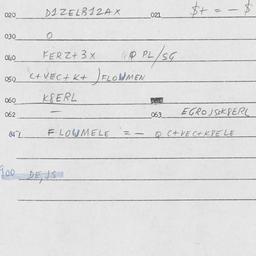 020 DIZELBIZAX 021 $t = - $
030 O
040 FERZ+3x φ PL/SG
050 K+VEC+K+ )FLOWMEN
060 K8ERL
062 — 063 EGROJS+K8ERL
FLOWMELE = - φ C+VEC+K8ELE
100 DE, JS